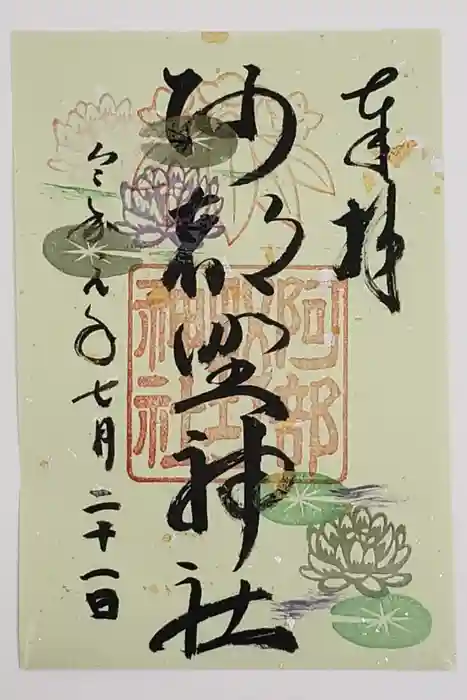 奉拝
阿部野神社
令和元年七月二十一日
阿部
神社